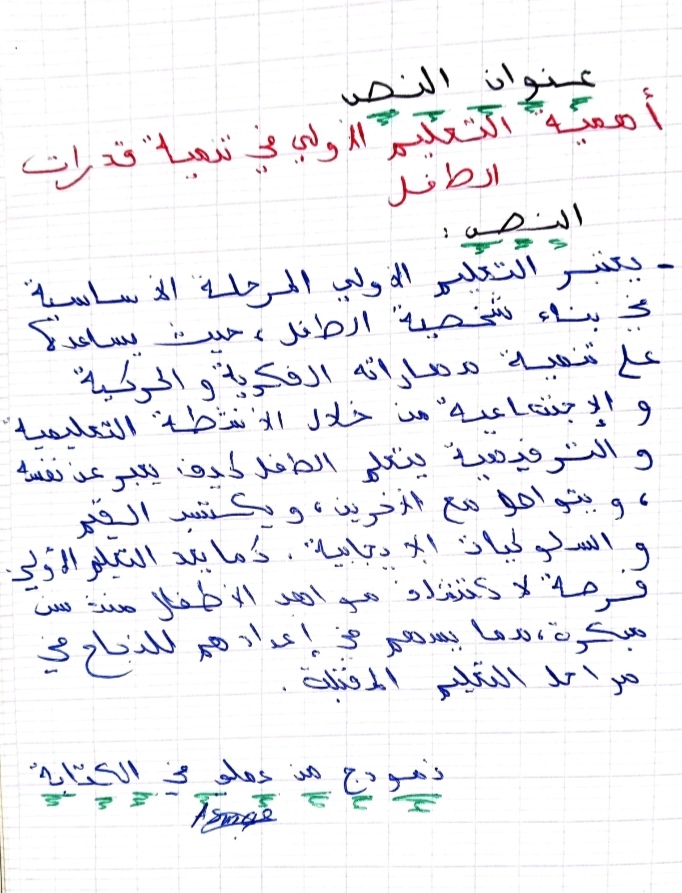 عنوان النص
أهمية التعليم الأولي في تنمية قدرات
الطفل
النص :
- يعتبر التعليم الأولي المرحلة الأساسية
في بناء شخصية الطفل، حيث يساعده
على تنمية مهاراته الفكرية و الحركية
و الإجتماعية من خلال الأنشطة التعليمية
و الترفيهية يتعلم الطفل كيف يعبر عن نفسه
، و يتواصل مع الآخرين، و يكتسب القيم
و السلوكيات الإيجابية. كما يعد التعليم الأولي
فرصة لاكتشاف مواهب الأطفال منذ سن
مبكرة، مما يسهم في إعدادهم للنجاح في
مراحل التعليم المقبلة.
نموذج من عملي في الكتابة